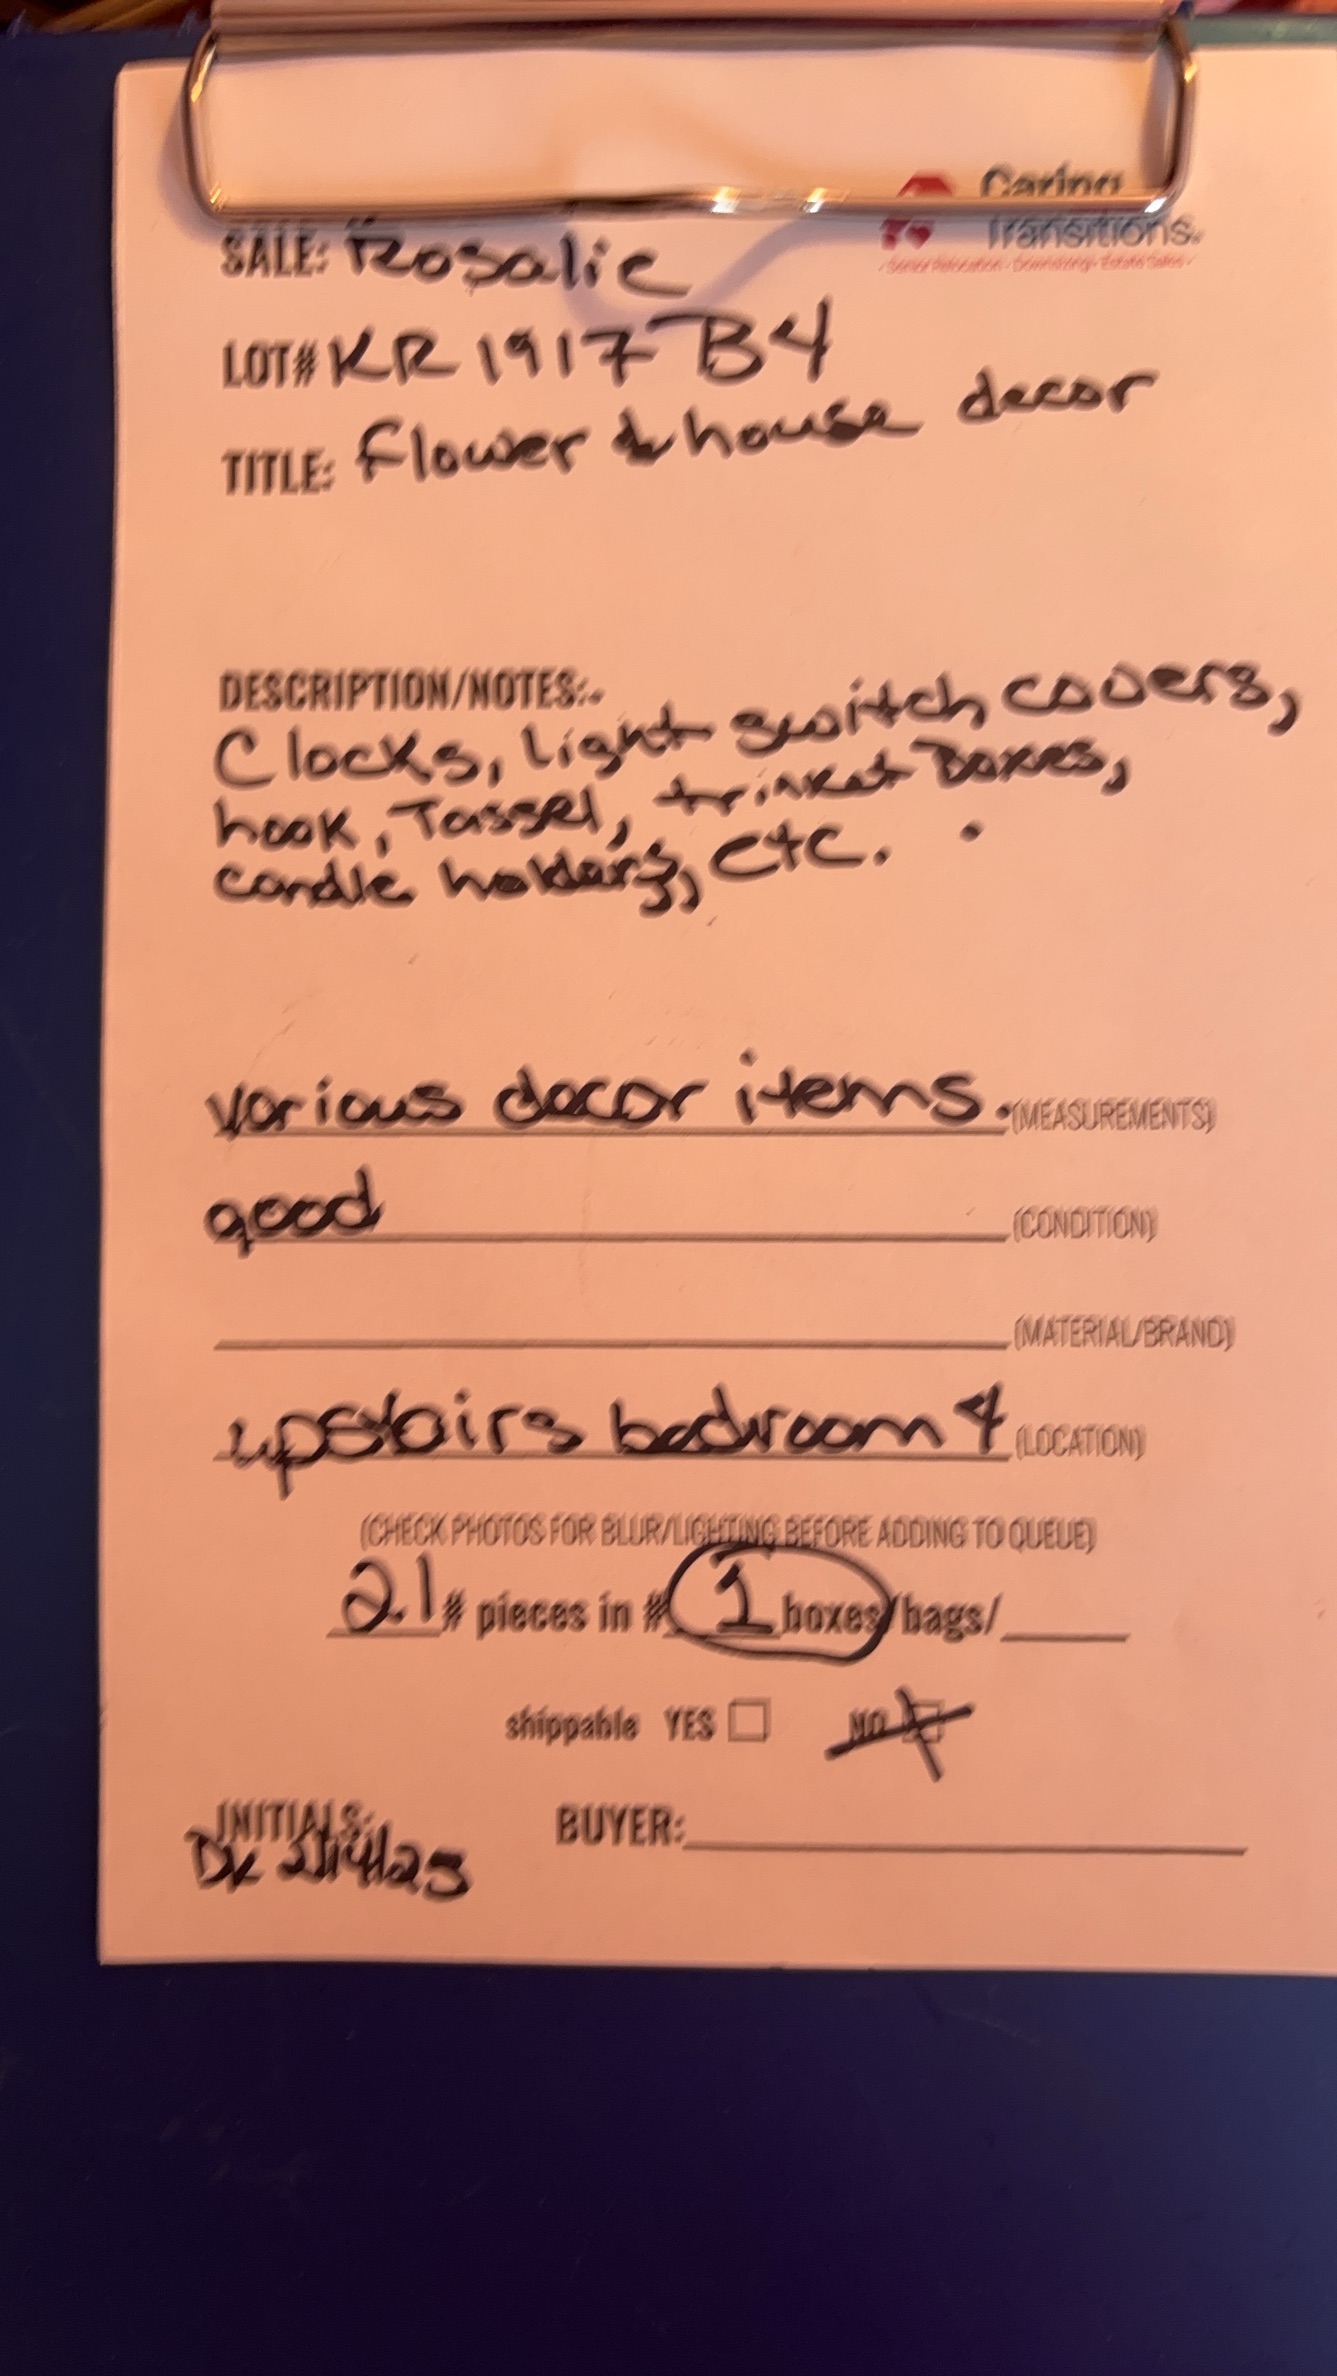 Caring
Transitions.
- Senior Relocation - Downsizing - Estate Sales -
SALE: Rosalie
LOT# KR 1917 B4
TITLE: flower & house decor
DESCRIPTION/NOTES:
Clocks, light switch covers,
hook, Tassel, trinket Boxes,
candle holders, etc.
various decor items. (MEASUREMENTS)
good (CONDITION)
(MATERIAL/BRAND)
upstairs bedroom 4 (LOCATION)
(CHECK PHOTOS FOR BLUR/LIGHTING BEFORE ADDING TO QUEUE)
21 # pieces in # 1 boxes/bags/
shippable YES NO
INITIALS: BUYER:
DK